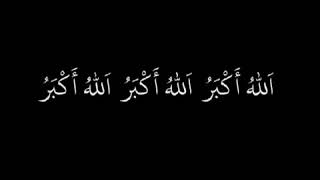 اَللهُ أَكْبَرُ اَللهُ أَكْبَرُ اَللهُ أَكْبَرُ